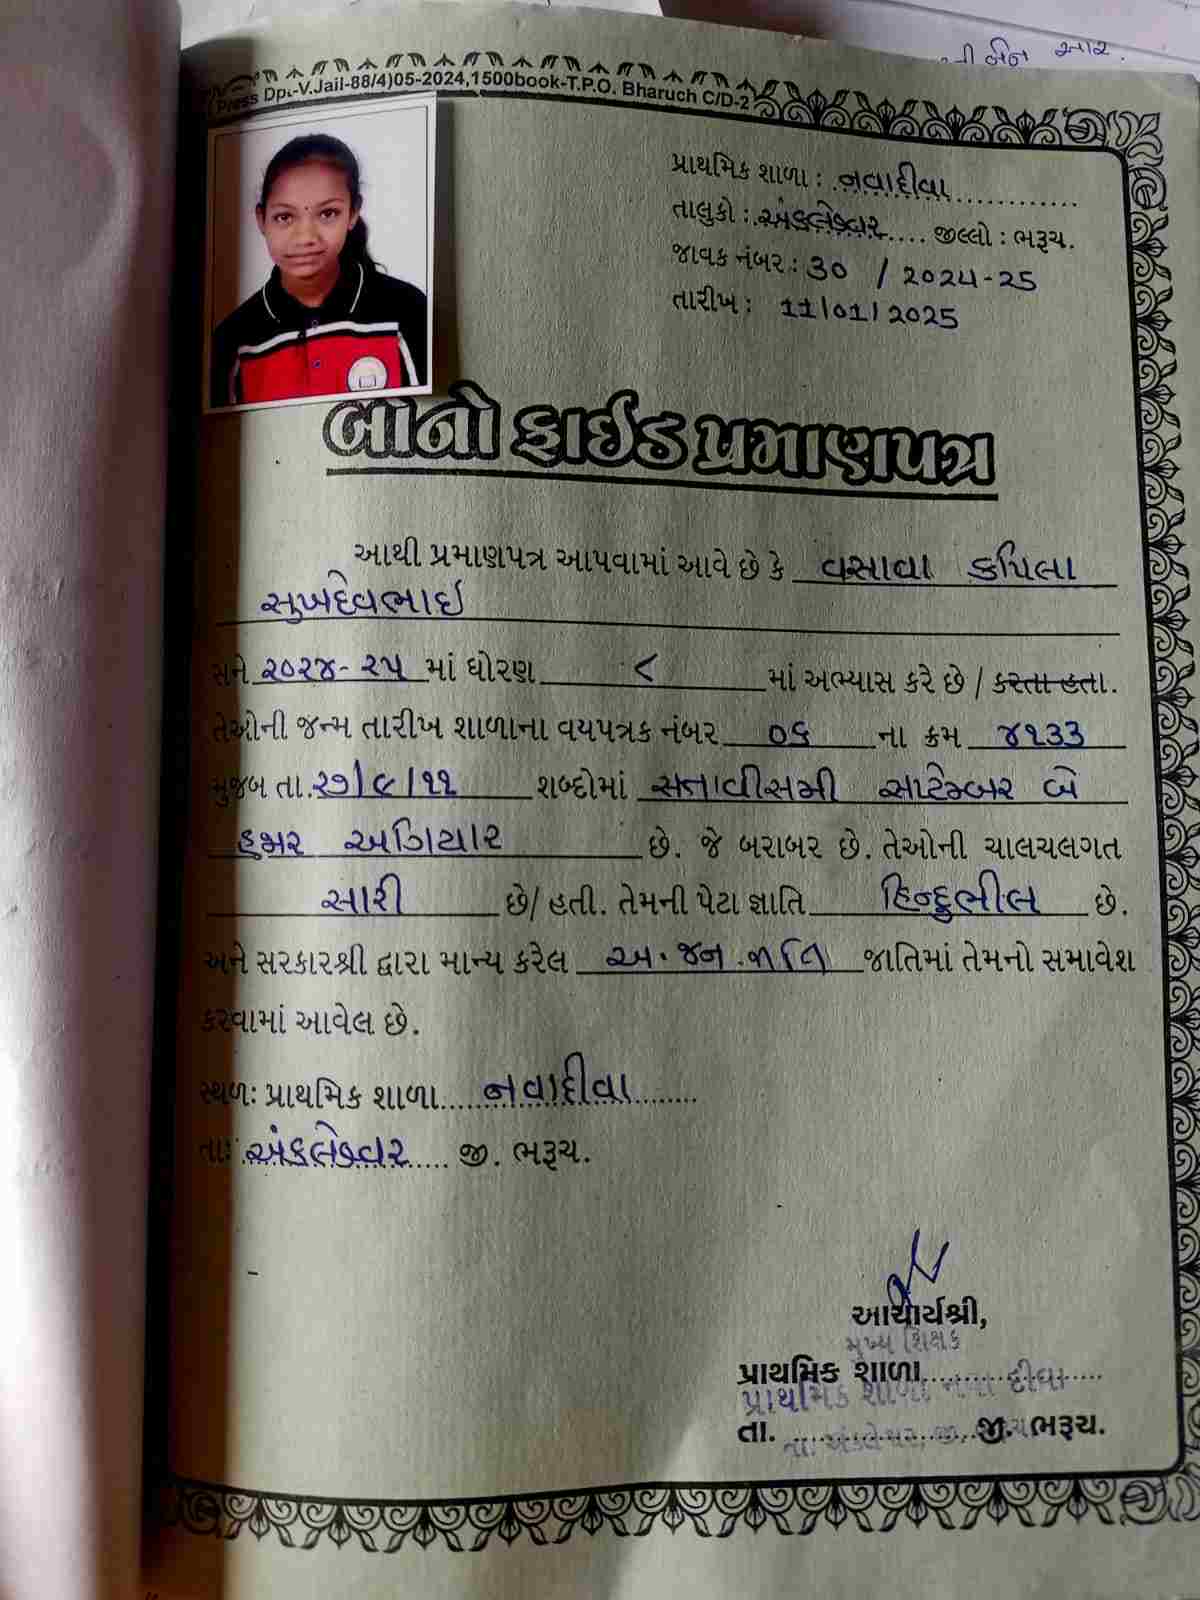 ીબેન આર.
Press Dpt.-V.Jail-88/4)05-2024,1500book-T.P.O. Bharuch C/D-2
પ્રાથમિક શાળા : નવાદીવા
તાલુકો : અંકલેશ્વર જીલ્લો : ભરૂચ.
જાવક નંબર : 30 / 2024-25
તારીખ : 11/01/2025
બોનો ફાઈડ પ્રમાણપત્ર
આથી પ્રમાણપત્ર આપવામાં આવે છે કે વસાવા કપિલા
સુખદેવભાઇ
સને ૨૦૨૪-૨૫ માં ધોરણ ૮ માં અભ્યાસ કરે છે / કરતા હતા.
તેઓની જન્મ તારીખ શાળાના વયપત્રક નંબર ૦૬ ના ક્રમ ૪૧૩૩
મુજબ તા. ૨૭/૯/૧૧ શબ્દોમાં સત્તાવીસમી સપ્ટેમ્બર બે
હજાર અગિયાર છે. જે બરાબર છે. તેઓની ચાલચલગત
સારી છે/ હતી. તેમની પેટા જ્ઞાતિ હિન્દુભીલ છે.
અને સરકારશ્રી દ્વારા માન્ય કરેલ અ. જન. જાતિ જાતિમાં તેમનો સમાવેશ
કરવામાં આવેલ છે.
સ્થળ: પ્રાથમિક શાળા નવાદીવા
તા: અંકલેશ્વર જી. ભરૂચ.
આચાર્યશ્રી,
મુખ્ય શિક્ષક
પ્રાથમિક શાળા
પ્રાથમિક શાળા નવા દીવા
તા. જી. ભરૂચ.
તા. અંકલેશ્વર, જી.